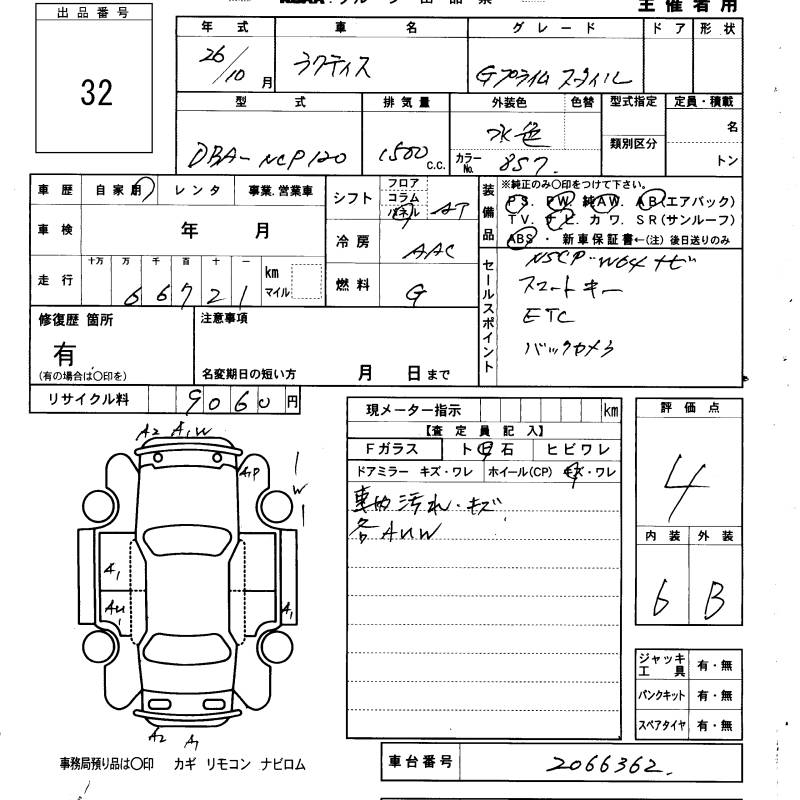 出品番号
32
主催者用
年式 車名 グレード ドア 形状
26/10月 ラクティス Gプライムスタイル
型式 排気量 外装色 色替 型式指定 定員・積載
DBA-NCP120 1500 c.c. 水色 類別区分 名
カラーNo. 857 トン
車歴 自家用 レンタ 事業.営業車
シフト フロア コラム パネル AT
装備品
※純正のみ〇印をつけて下さい。
PS. PW. 純AW. AB(エアバック)
TV. ナビ. カワ. SR(サンルーフ)
ABS・新車保証書←(注)後日送りのみ
車検 年 月
冷房 AAC
走行 十万 万 千 百 十 一
66721 km マイル
燃料 G
セールスポイント
NSCP-W64ナビ
スマートキー
ETC
バックカメラ
修復歴 箇所 注意事項
有
(有の場合は〇印を) 名変期日の短い方 月 日まで
リサイクル料 9060円
現メーター指示 km
【査定員記入】
Fガラス ト日石 ヒビワレ
ドアミラー キズ・ワレ ホイール(CP) キズ・ワレ
車内汚れ・キズ
各AUW
評価点
4
内装 外装
6 B
A2 A1W
A1P
W
A1
AU1
A1
A2 A1
ジャッキ工具 有・無
パンクキット 有・無
スペアタイヤ 有・無
事務局預り品は〇印 カギ リモコン ナビロム
車台番号 2066362